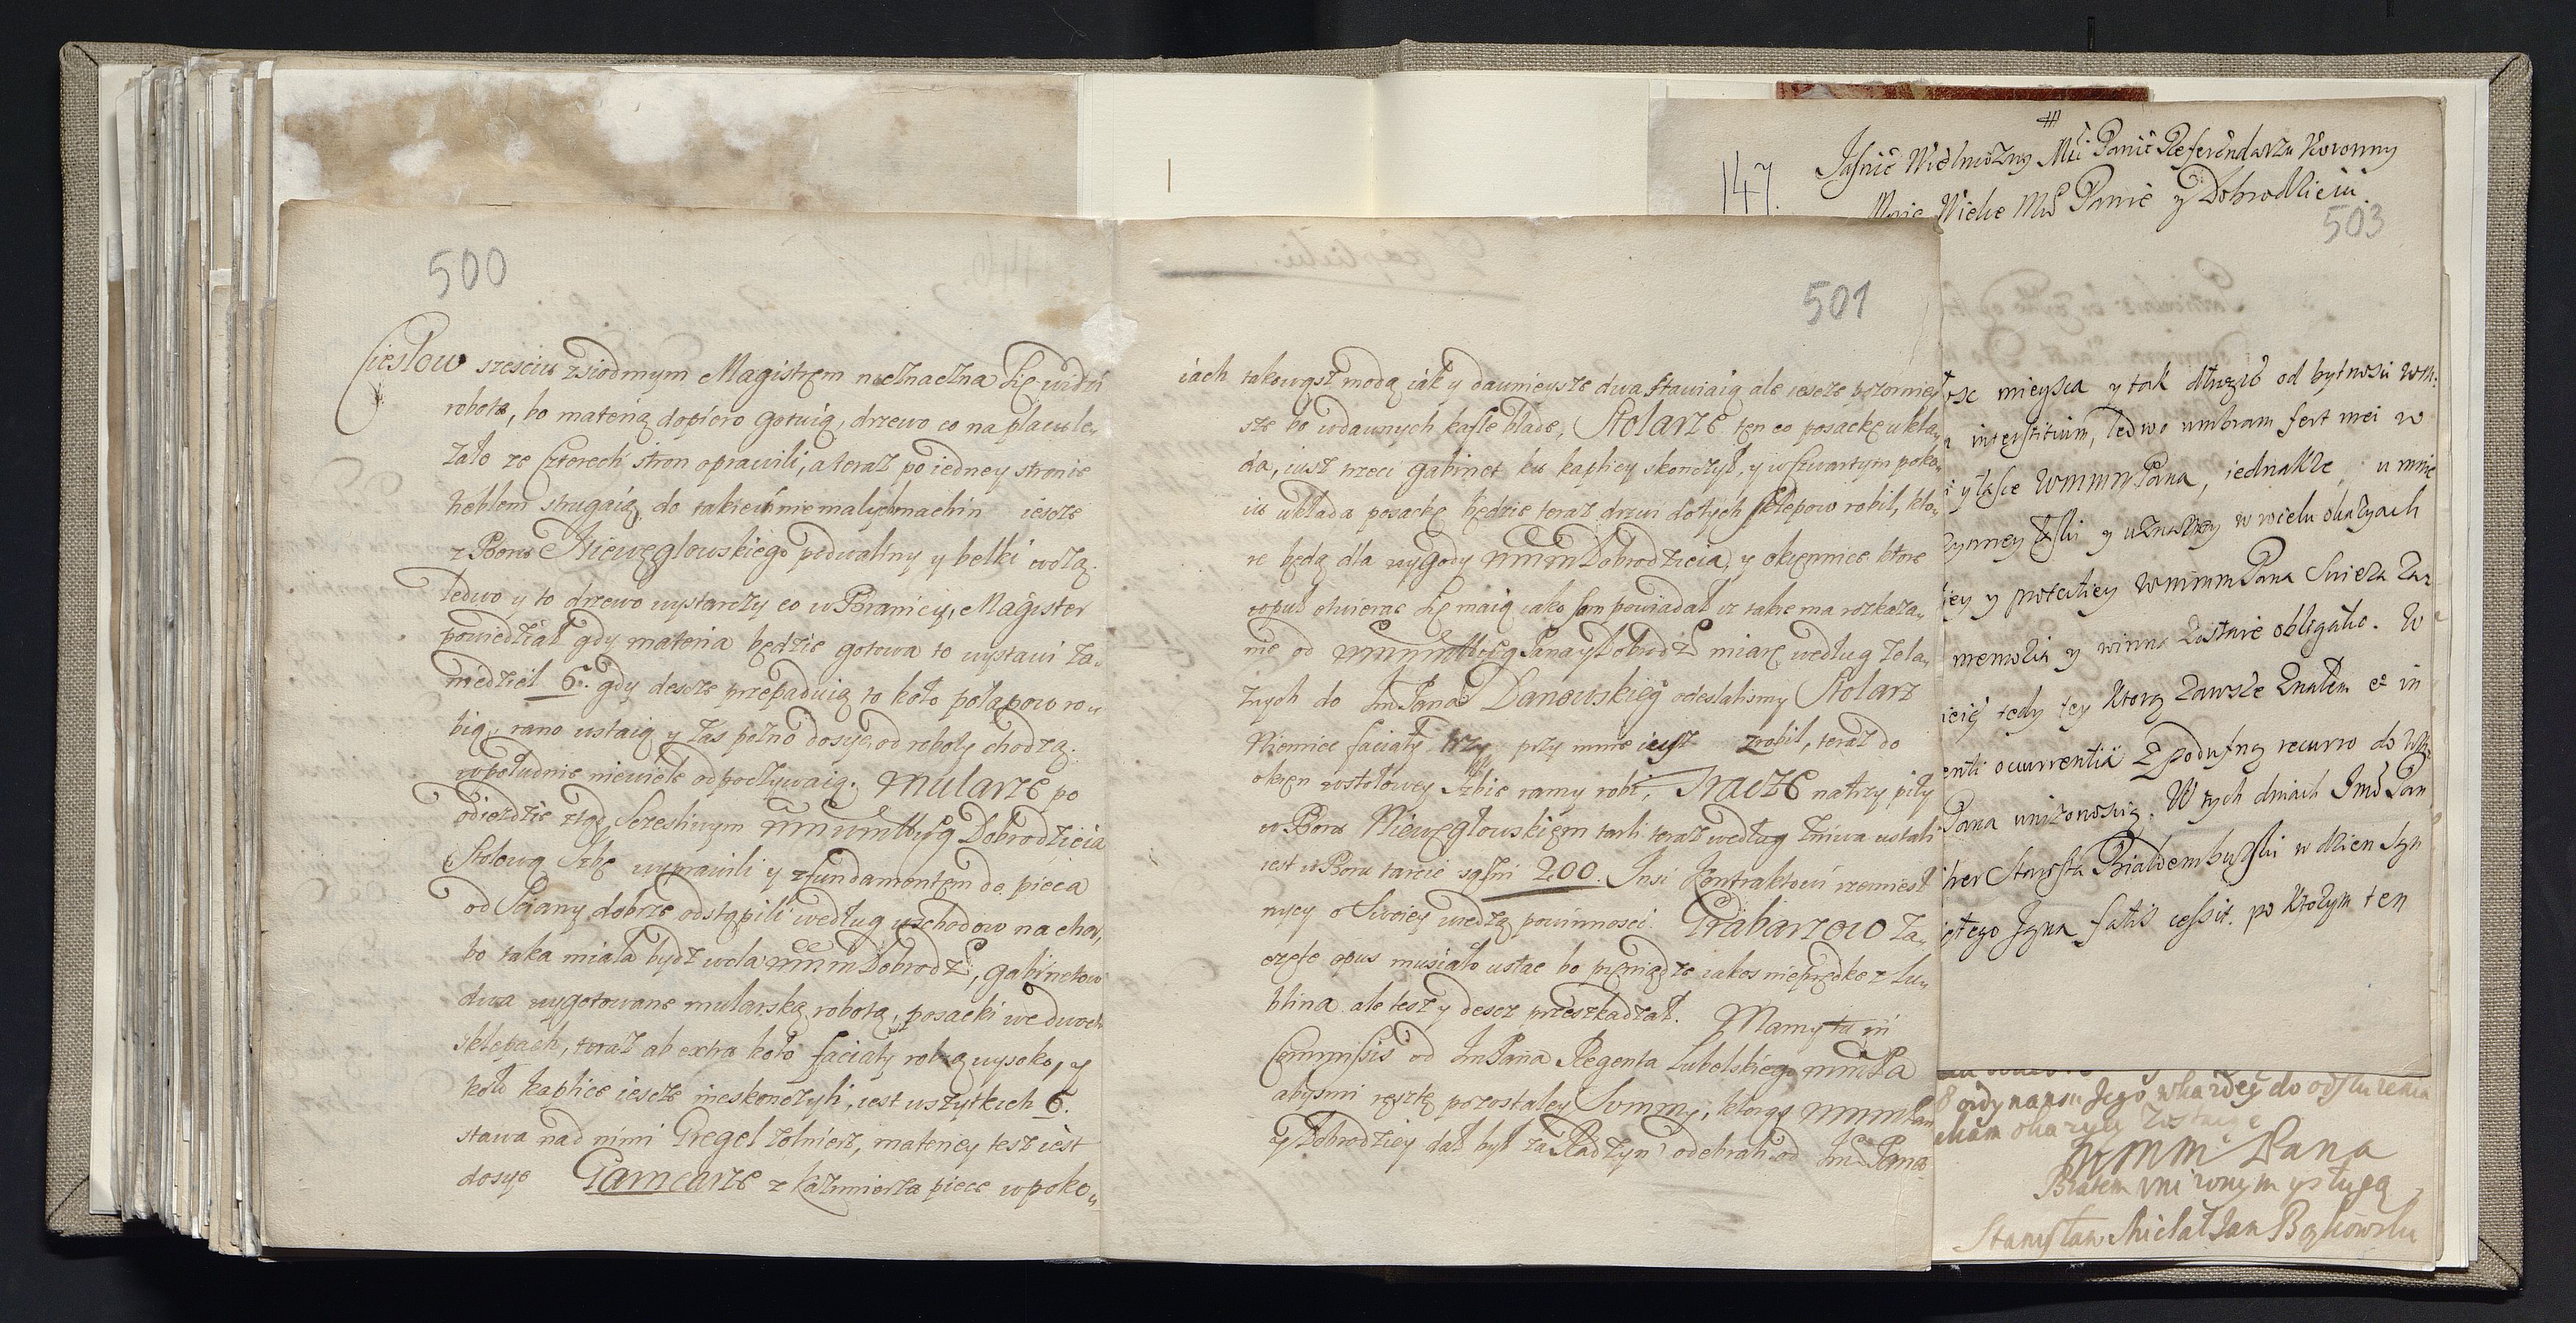 500
Ciesłow szesciu z siodmym Magistrem nieznaczna się widzi
robota, bo materią dopiero gotuią, drzewo co na placu le„
zało ze Czterech stron oprawili, a teraz po iedney stronie
heblem strugaią, do takich niemałych machin iescze
z Boru Niewęglowskiego podwaliny y belki wożą.
ledwo y to drzewo wystarczy co w Branicy, Magister
powiedział gdy materia będzie gotowa to wystawi za„
niedziel 6. gdy descze przepaduią to koło połapow ro„
bią, rano ustaią y zas pozno dosyc od roboty chodzą.
w południe niewiele odpoczywaią. Mularze po
odiezdzie ztąd Szczesliwym Dobrodzieia
Stołową Izbę wyprawili y z fundamentem do pieca
od Sciany dobrze odstąpili według wschodow na chor,
bo taka miała bydz wola Dobrodz, gabinetow
dwa wygotowane mularską robotą, posacki we dwoch
sklepach, teraz ab extra koło faciaty robią wysoko, y
koło kaplice iescze nieskonczyli, iest wszytkich 6.
stawa nad nimi Gregel zołnierz, materiey tesz iest
dosyc Garncarze z Kazimierza piece w poko„
501
iach takowąsz modą iak y dawnieysze dwa stawiaią ale iescze przomiey
sze bo w dawnych kafle blade, Stolarze ten co posackę ukła„
da, iusz trzeci gabinet ku kaplicy skonczył, y w czwartym poko„
iu układa posackę będzie teraz drzwi do tych sklepow robił, kto„
re będą dla wygody Dobrodzieia, y okiennice ktore
wpuł otwierac się maią iako sam powiadał iz takie ma rozkaza„
nie od Pana y Dobrodz miarę według zela„
znych do Im Pana Danowskieg odesłalismy Stolarz
Niemiec faciaty trzy przy mnie iusz zrobił, teraz do
okien w stołowey Izbie ramy robi, Tracze na trzy piły
w Boru Niewęglowskiem tarli teraz według zniwa ustali
iest w Boru tarcic sąsni 200. Insi Kontraktowi rzemiesl
nicy o Swoiey wiedzą powinnosci. Grabarzowo za„
częte opus musiało ustac bo pieniądze iakos nieprędko z Lu„
blina ale tesz y descz przeszkadzał. Mamy tu in
Commissis od Im Pana Regenta Lubelskiego
abysmi resztę pozostałey Summy, ktorą
y Dobrodziey dał był za Radzyn odebrali od Im Pana
147.
Jasnie Wielmożny Mci Panie Referendarzu Koronny
Moie Wielce Mci Panie y Dobrodzieiu.
503
osc mieysca y tak dłuzsze od bytnosci WM.
interstitium, ledwo umbram fert mei w
y łasce WMMM Pana, iednakze u mnie
w wielu okazyach
iey y protectiey WMMM Pana Swieza zaz
memoria y winna zostaie obligatio. W
tedy tey ktorą zawsze znałem et in
enti occurrentia z poduſną recurro do WM
Pana unizonoscią. W tych dniach Imć Pan
Starosta w dzien Syn
iętego Jgna fatis cessit. po ktorym ten
ordynansu Jego w kazdey do odsłuzenia
okazyey zostaię
WMM Pana
Bratem unizonym y sługą
Stanisław Michał Jan Bąkowski